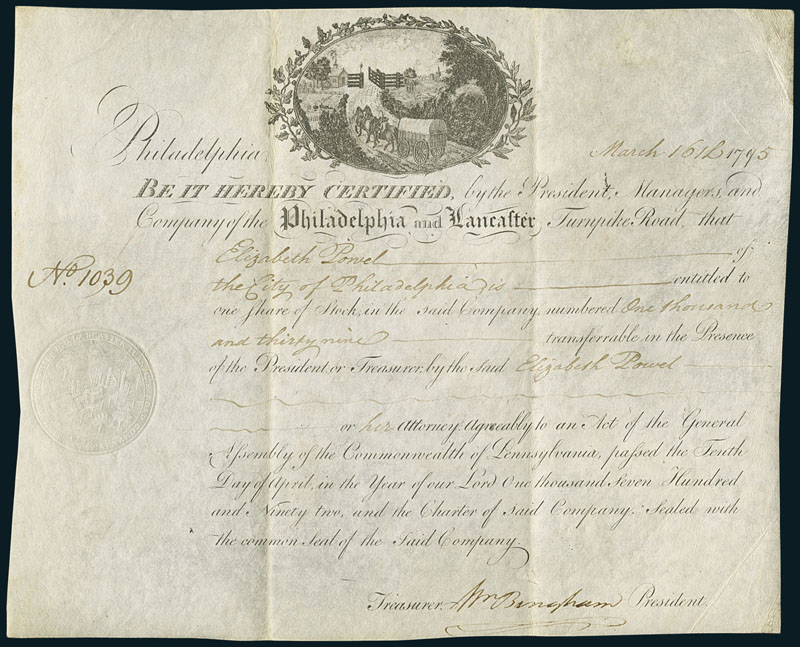 Philadelphia, March 16th 1795
BE IT HEREBY CERTIFIED, by the President, Managers, and
Company of the Philadelphia and Lancaster Turnpike Road, that
Elizabeth Powel of
No. 1039
the City of Philadelphia is entitled to
one Share of Stock, in the Said Company, numbered One thousand
and thirty nine transferrable in the Presence
of the President or Treasurer, by the Said Elizabeth Powel
or her Attorney. Agreeably to an Act of the General
Assembly of the Commonwealth of Pennsylvania, passed the Tenth
Day of April, in the Year of our Lord One thousand Seven Hundred
and Ninety two, and the Charter of Said Company. Sealed with
the common Seal of the Said Company.
Treasurer. Wm Bingham President.